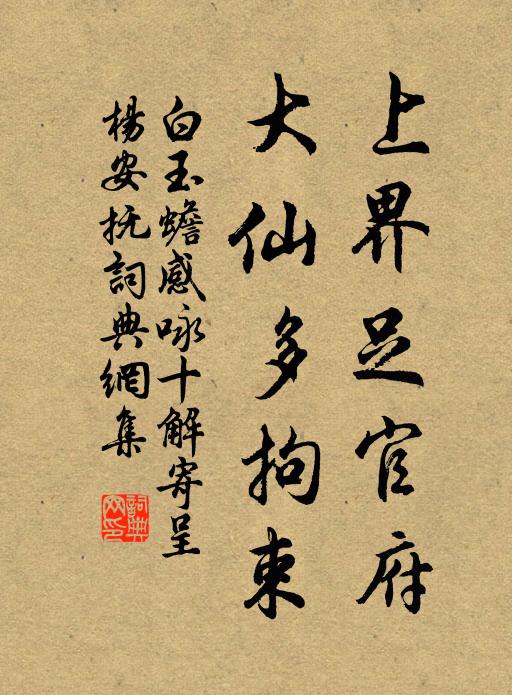 上界足官府
大仙多拘束
白玉蟾感咏十解寄呈
楊安抚詞典網集
詞典网印